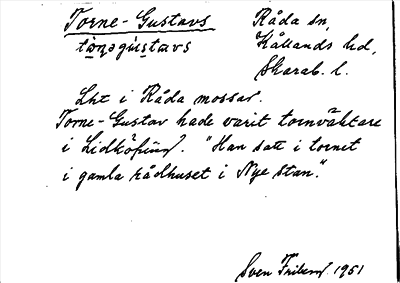 Torne-Gustavs
Råda sn,
tɷ̀ṇəgùstavs
Kållands hd,
Skarab. l.
Lht i Råda mossar.
Torne-Gustav hade varit tornväktare
i Lidköping. "Han satt i tornet
i gamla rådhuset i Nye stan."
Sven 1951